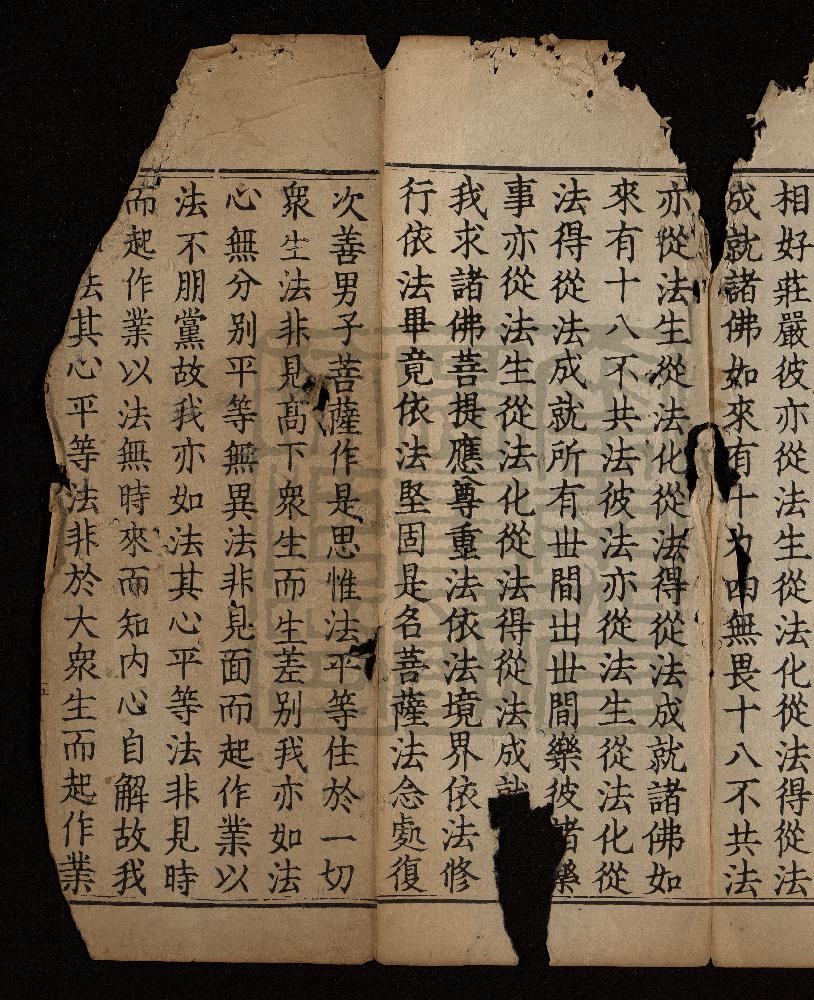 相好莊嚴彼亦從法生從法化從法得從法
成就諸佛如來有十力四無畏十八不共法
亦從法生從法化從法得從法成就諸佛如
來有十八不共法彼法亦從法生從法化從
法得從法成就所有丗間出丗間樂彼諸樂
事亦從法生從法化從法得從法成就
我求諸佛菩提應尊重法依法境界依法修
行依法畢竟依法堅固是名菩薩法念處復
次善男子菩薩作是思惟法平等住於一切
衆生法非見高下衆生而生差別我亦如法
心無分别平等無異法非見面而起作業以
法不朋黨故我亦如法其心平等法非見時
而起作業以法無時來而知内心自解故我
法其心平等法非於大衆生而起作業